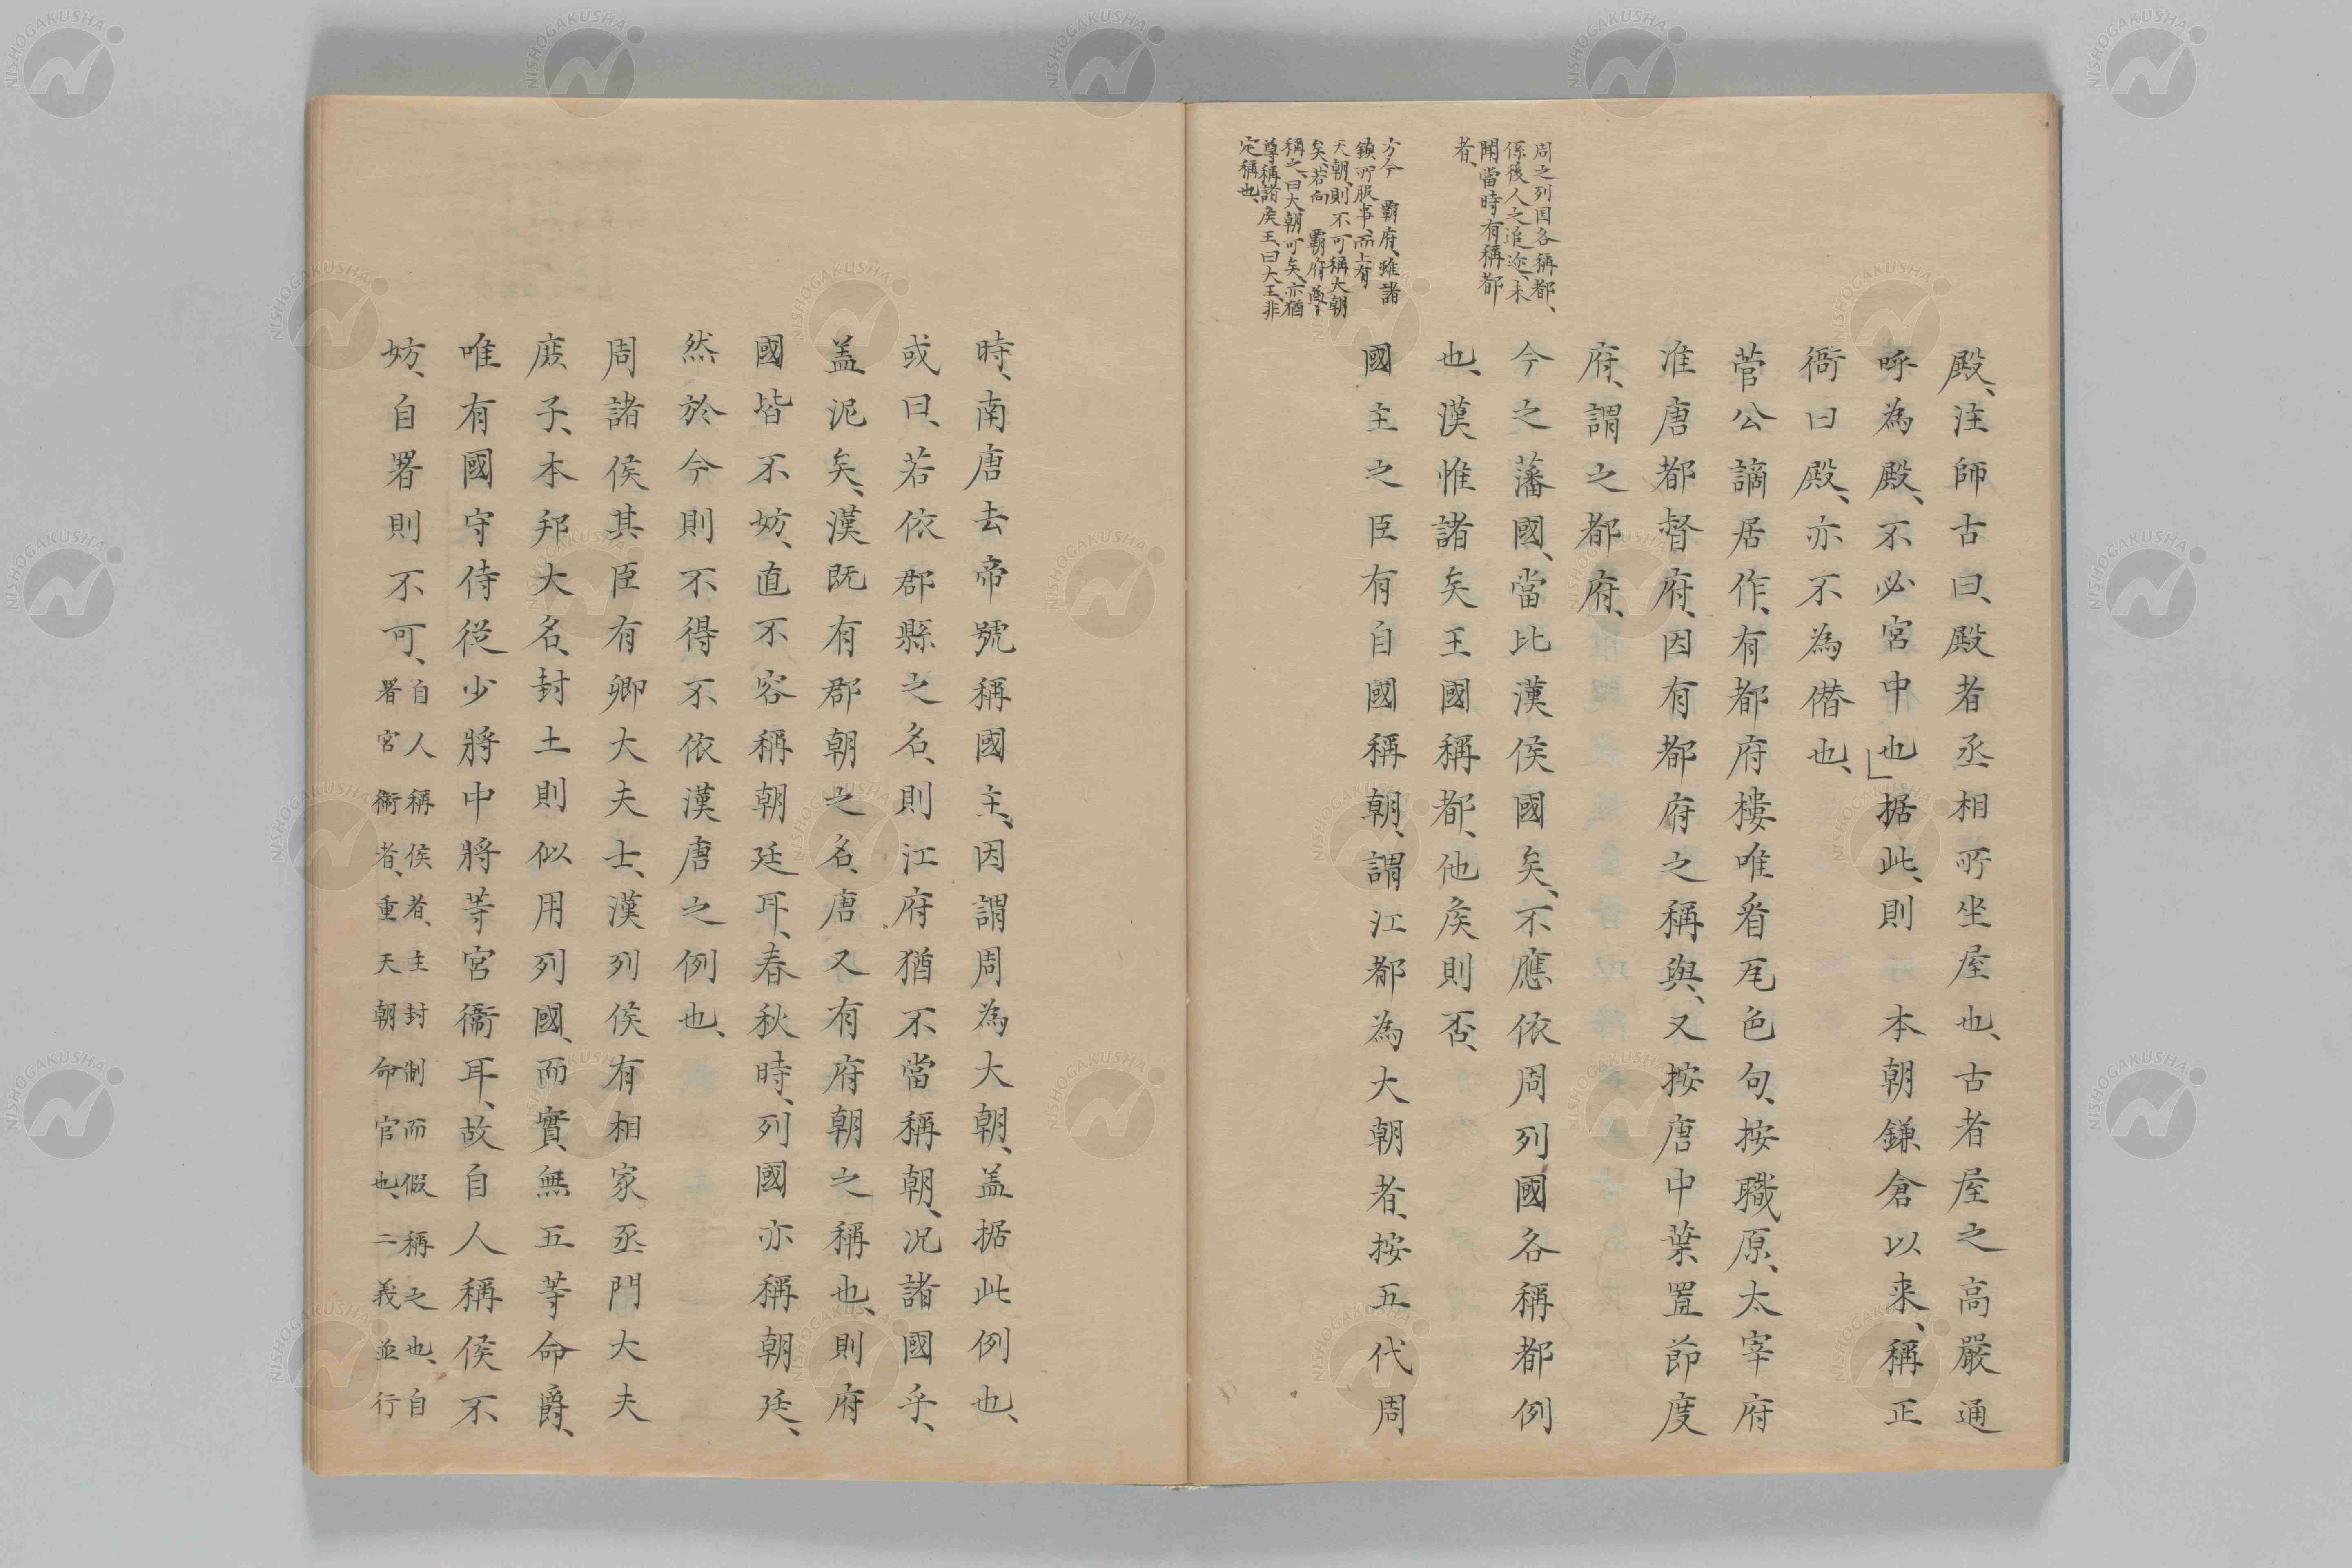 周之列国各稱都、
係後人之追迹、未
聞當時有稱都
者、
方今　霸府、雖諸
鎮所服事、而上有
天朝、則不可稱大朝
矣、若向　霸府尊
稱之、曰大朝可矣、亦猶
尊稱諸矦王、曰大王、非
定稱也、
殿、注師古曰、殿者丞相所坐屋也、古者屋之高嚴通
呼為殿、不必宮中也」据此、則　本朝鎌倉以来、稱正
衙曰殿、亦不為僭也、
菅公謫居作、有都府樓唯看瓦色句、按職原、太宰府
准唐都督府、因有都府之稱與、又按唐中葉置節度
府、謂之都府、
今之藩國、當比漢侯國矣、不應依周列國各稱都例
也、漢惟諸矣王國稱都、他矦則否、
國主之臣有自國稱朝、謂江都為大朝者、按五代周
時、南唐去帝號稱國主、因謂周為大朝、盖据此例也、
或曰、若依郡縣之名、則江府猶不當稱朝、况諸國乎、
盖泥矣、漢既有郡朝之名、唐又有府朝之稱也、則府
國皆不妨、直不容稱朝廷耳、春秋時、列國亦稱朝廷、
然於今則不得不依漢唐之例也、
周諸侯其臣有卿大夫士、漢列侯有相家丞門大夫
庶子、本邦大名、封土則似用列國、而實無五等命爵、
唯有國守侍從少將中將等官銜耳、故自人稱侯不
妨、自署則不可、自人稱侯者、主封制而假稱之也、自
署官銜者、重天朝命官也、二義並行